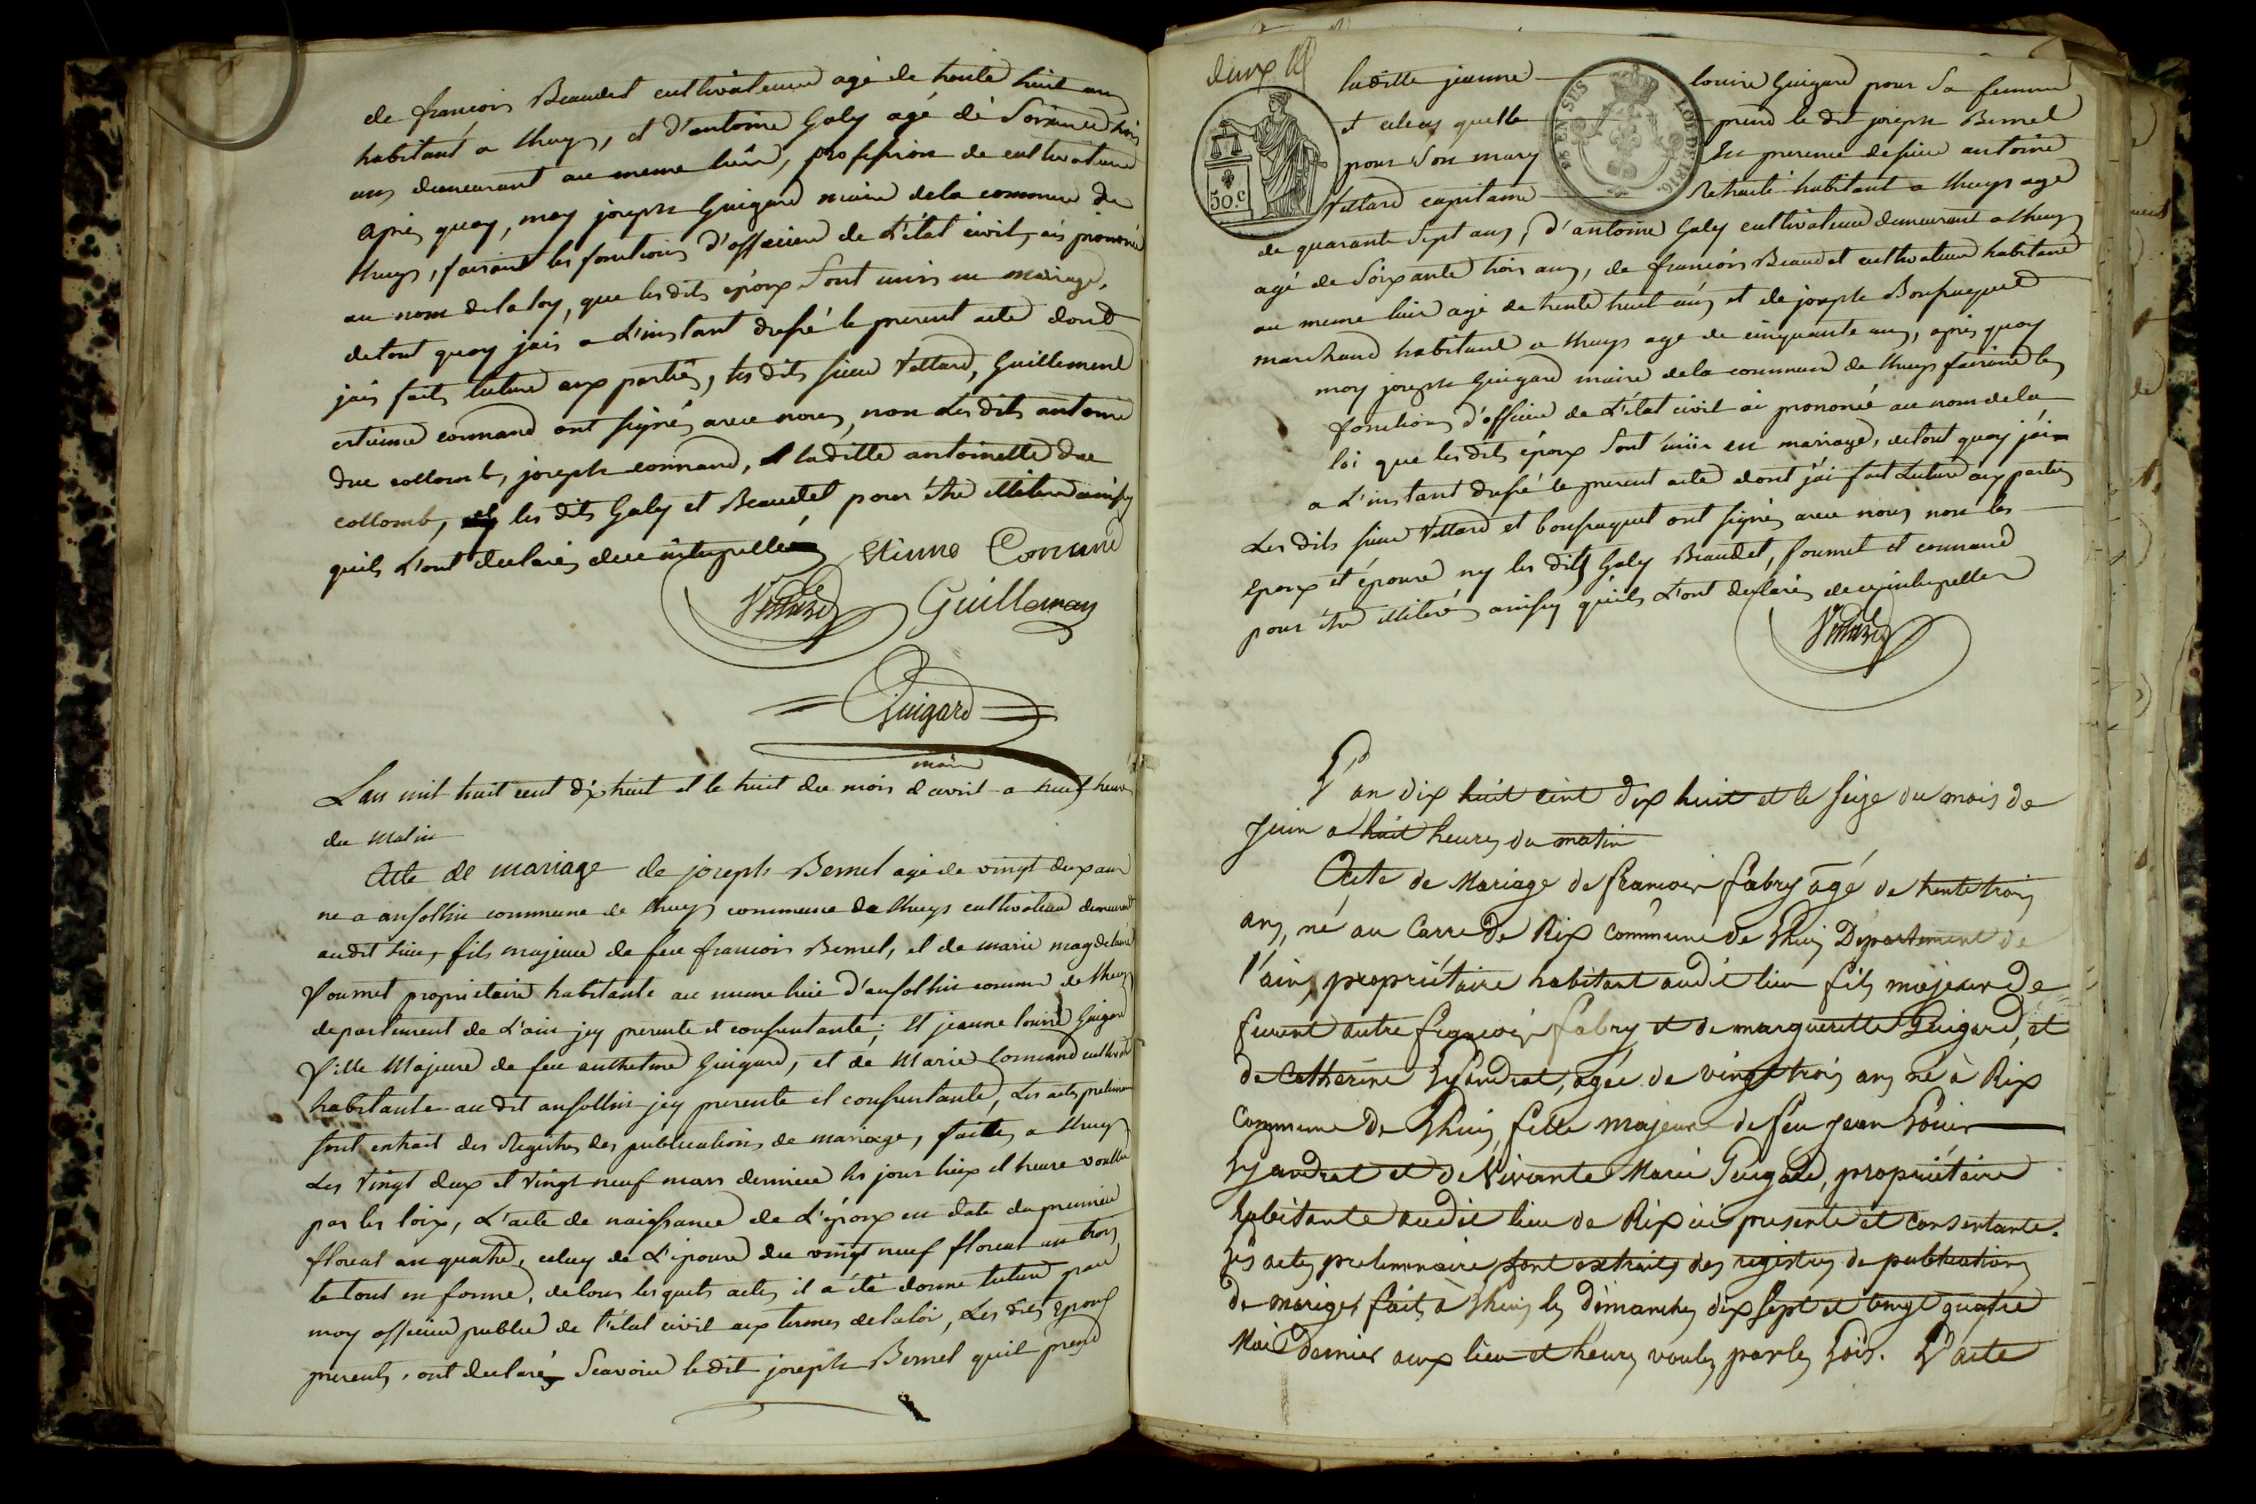 de francois Beaudet cultivateur agé de trente huit ans
habitant a thuys, et d'antoine Galy agé de Soixante trois
ans demeurant au meme lieu, profession de cultivateur
après quoy, moy joseph Guigard maire de la commune de
thuys, faisant les fonctions d'officier de L'état civil, ais prononcé
au nom de la loy, que les dits époux Sont unis en mariage,
de tout quoy jais a L'instant dressé le present acte dont
jais fait lecture aux parties, les dits sieur Vettard, Guillement
etienne connand ont signés avec nous, non Les dits antoine
duc collomb, joseph connand, et laditte antoinette duc
collomb, les dits Galy et Beaudet pour être illiteré ainsy
quils L'ont declarés de ce interpellés
Etienne Connand
Vettard Guilleman
Guigard
maire
L'an mil huit cent dix huit et le huit du mois d'avril a neuf heure
du Matin
Acte de mariage de joseph Bernel agé de vingt deux ans
ne a ansollin commune de thuys commune de thuys cultivateur demeurant
audit lieu, fils majeur de feu francois Bernel, et de marie magdelaine
Foumet proprietaire habitante au meme lieu d'ansollin commune de thuys
departement de L'ain jcy presente et consentante; Et jeanne louise Guigard
Fille Majeure de feu anthelme Guigard, et de Marie Connand
habitante au dit ansollin jcy presente et consentante, Les actes
sont extrait des Registres des publications de mariage, faites a thuys
Les Vingt deux et Vingt neuf mars dernier les jour lieux et heure voullue
par les loix, L'acte de naissance de L'époux en date du premier
floreal an quatre, celuy de L'épouse du vingt neuf floreal an trois
le tout en forme, de tous les quels actes il a été donné lecture par
moy officier public de l'état civil aux termes de la loi, Les dits Epoux
presents, ont declarés Scavoir le dit joseph Bernel quil prend
deux
50.c
EN SUS
LOI DE 1816.
laditte jeanne louise Guigard pour Sa femme
et celle cy quelle prend le dit joseph Bernel
pour Son mary En presence de sieur antoine
Vettard capitaine Retraité habitant a thuys agé
de quarante Sept ans, d'antoine Galy cultivateur demeurant a thuys
agé de Soixante trois ans, de françois Beaudet cultivateur habitant
au meme lieu agé de trente huit ans et de joseph Bonfruquet
marchand habitant a thuys age de cinquante ans, après quoy
moy joseph Guigard maire de la commune de thuys faisant les
fonctions d'officier de L'état civil ai prononcé au nom de la
loi que les dits époux Sont unis en mariage, de tout quoy jai
a L'instant dressé le present acte dont j'ai fait Lecture aux parties
Les dits sieur Vettard et bonfruquet ont signés avec nous non les
époux et épouse ny les dits Galy Beaudet, foumet et connand
pour être illiteré ainsy qu'ils L'ont declarés de ce interpeller
Vettard
L'an dix huit cent dix huit et le seize du mois de
Juin a huit heures du matin
Acte de Mariage de francois fabry âgé de trente trois
ans, né au Carre de Rix commune de Thuis Département de
l'ain, propriétaire habitant audit lieu fils majeur de
furent autre françois fabry et de marguerette Guigard, et
de Catherine Lyandrat, agée de vingt trois ans né à Rix
Commune de Thuis, fille majeure de feu Jean Louis
Lyandrat et de Vivante Marie Guigard, propriétaire
habitante audit lieu de Rix ici presente et consentante.
Les actes preliminaires sont extraits des registres de publications
de mariges fait à Thuis les dimanches dix Sept et vingt quatre
Mai dernier aux lieu et heures voulus par les Lois. L'acte